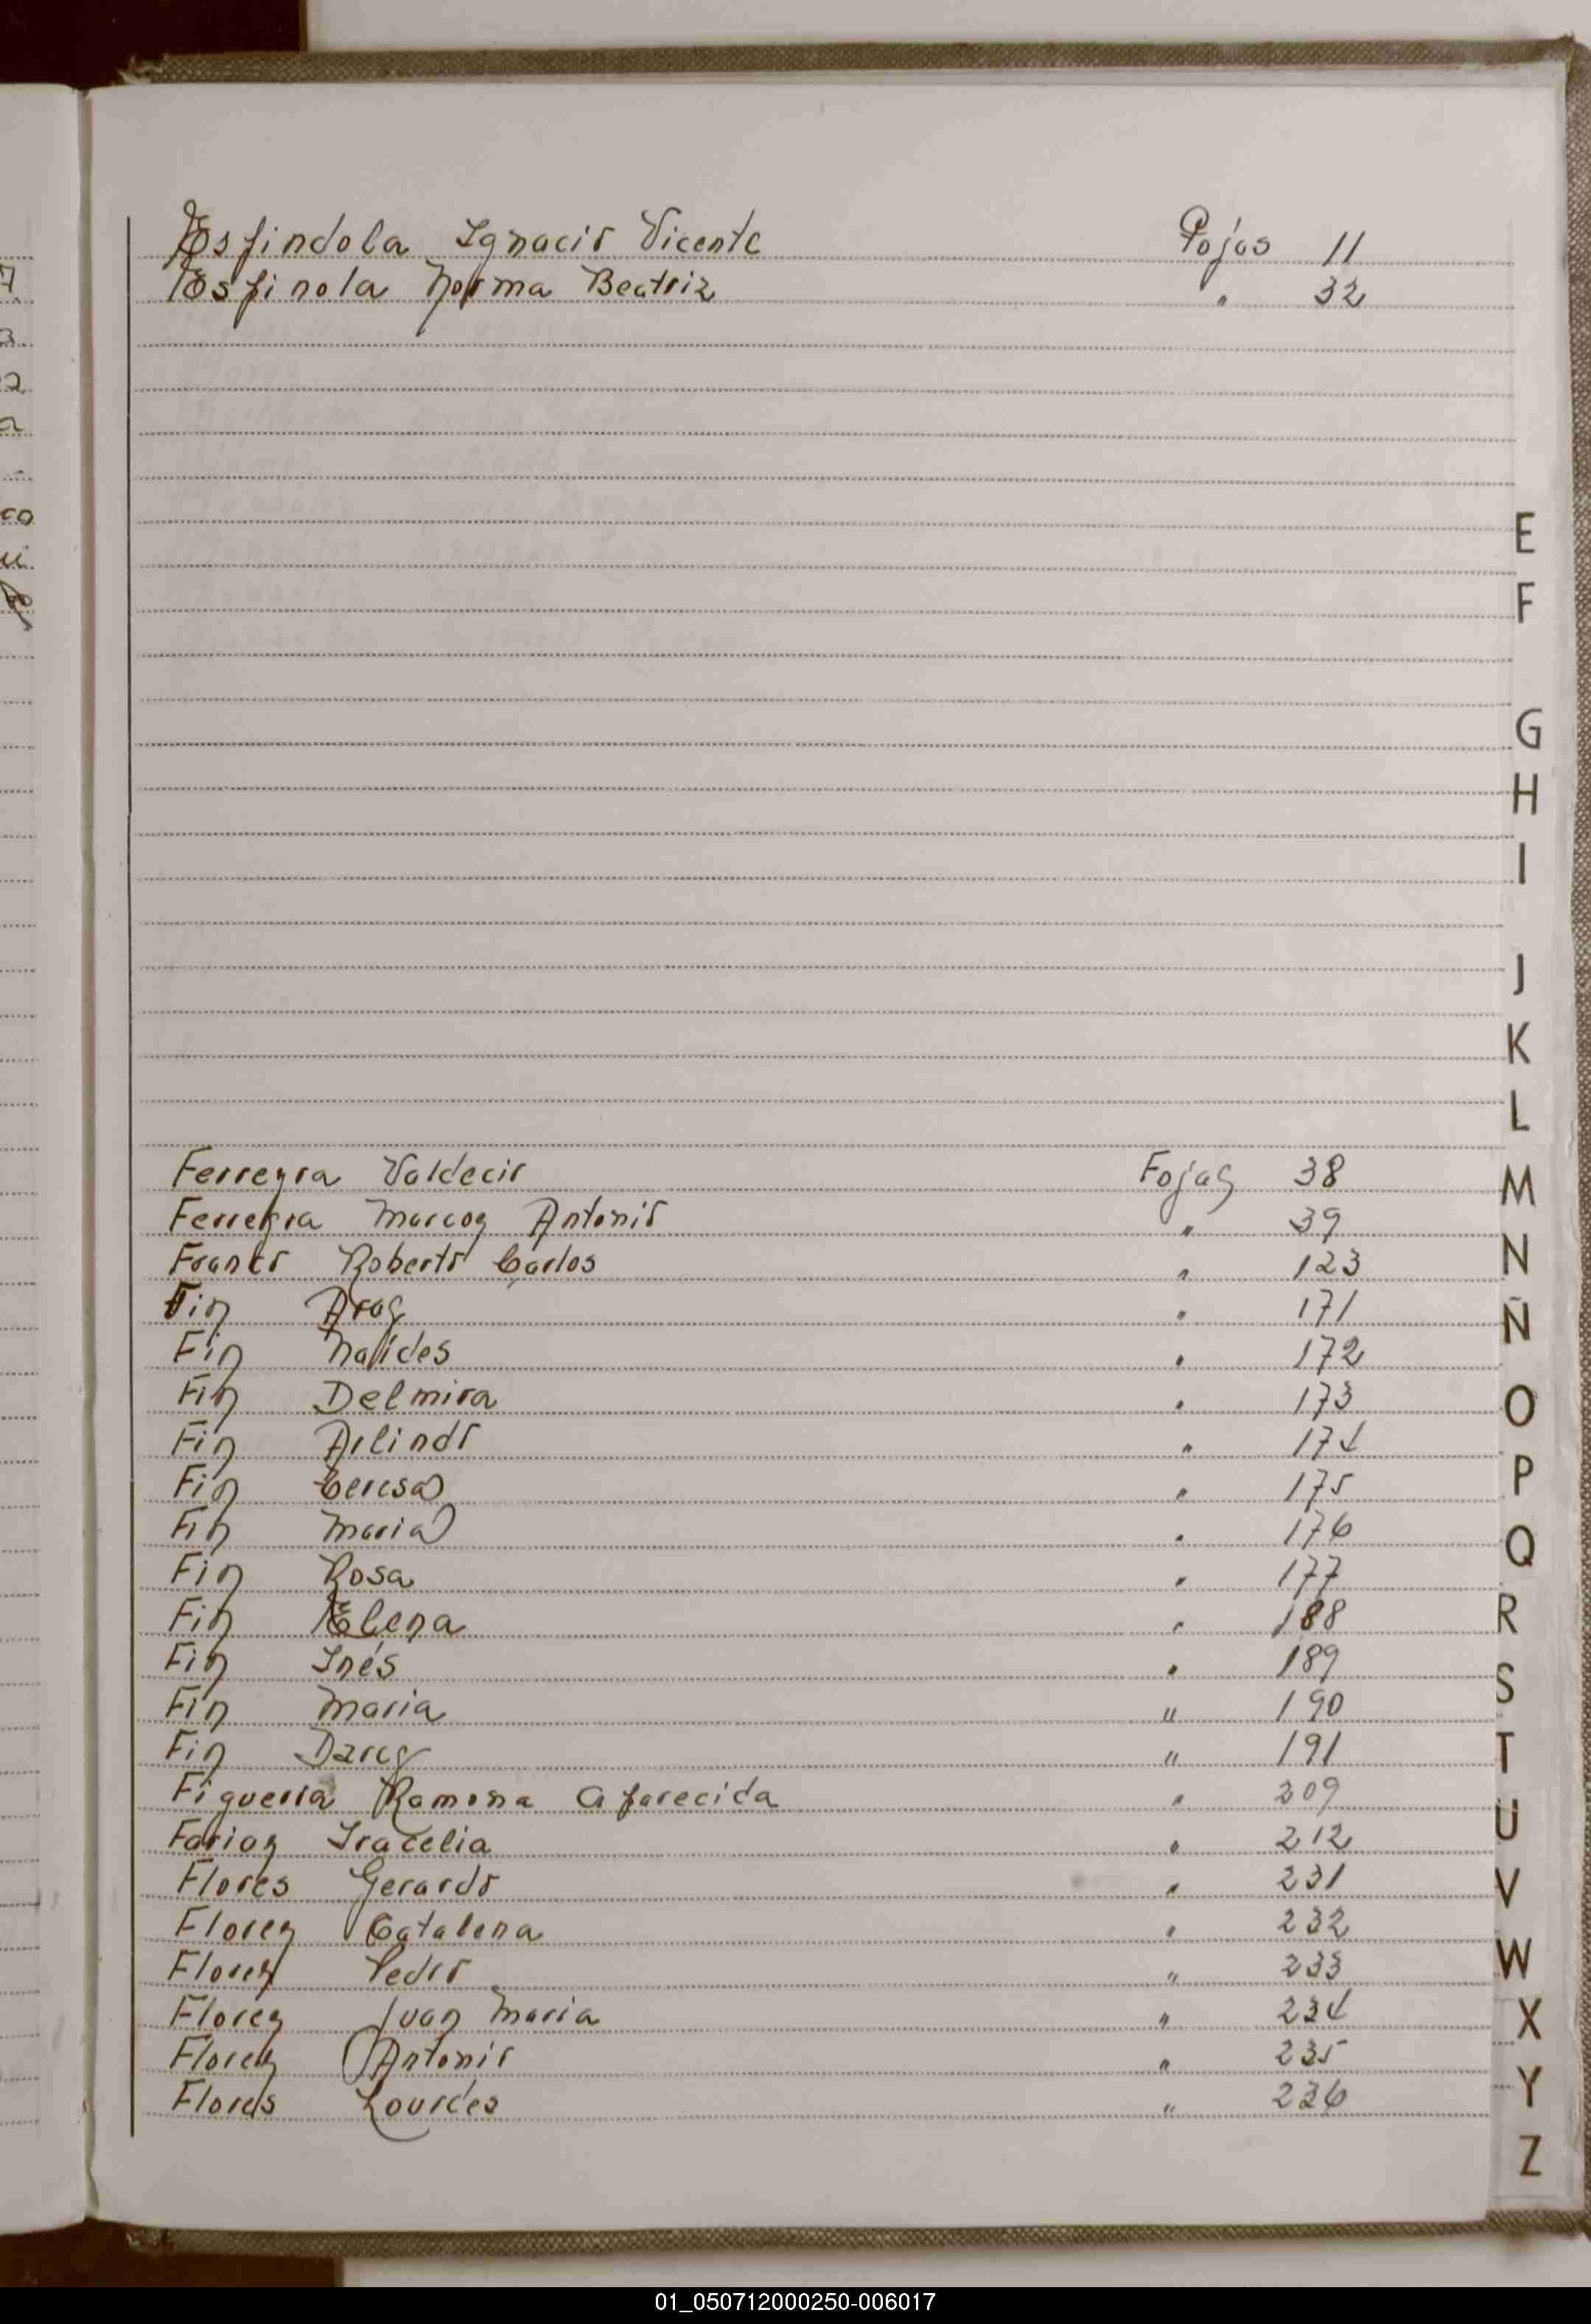 Espindola Ignacio Vicente Fojas 11
Espinola Norma Beatriz " 32
E
F
G
H
I
J
K
L
Ferreyra Valdecir Fojas 38
M
Ferreyra Marcos Antonio " 39
Franco Roberto Carlos " 123
N
Fin " 171
Ñ
Fin Naides " 172
Fin Delmira " 173
O
Fin Arlindo " 174
Fin Ceresa " 175
P
Fin Maria " 176
Q
Fin Rosa " 177
Fin Elena " 188
R
Fin Inés " 189
S
Fin Maria " 190
Fin Darcy " 191
T
Figueria Ramona Aparecida " 209
U
Farias Iracelia " 212
Flores Gerardo " 231
V
Flores Catalena " 232
Flores Pedro " 233
W
Flores Juan Maria " 234
X
Flores Antonio " 235
Flores Lourdes " 236
Y
Z
01_050712000250-006017